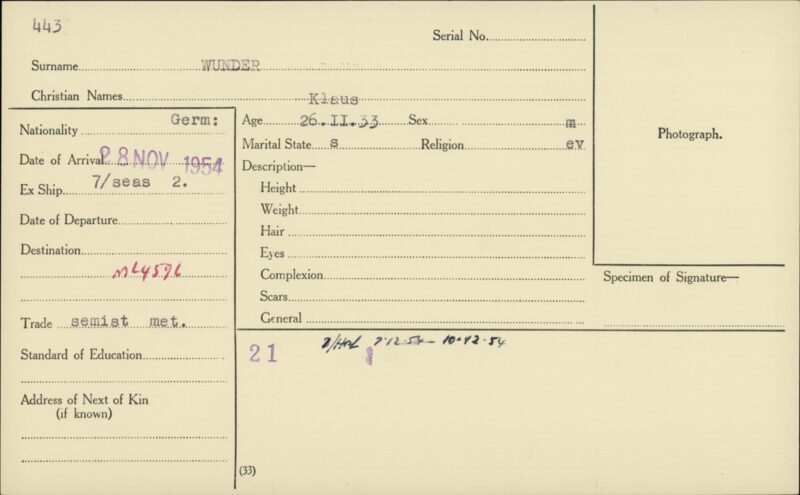 443
Serial No.
Surname WUNDER
Christian Names Klaus
Nationality Germ:
Date of Arrival 28 NOV 1954
Ex Ship 7/seas 2.
Date of Departure
Destination
Trade semist met.
Standard of Education
Address of Next of Kin
(if known)
Age 26.II.33 Sex m
Marital State s Religion ev
Description—
Height
Weight
Hair
Eyes
Complexion
Scars
General
Photograph.
Specimen of Signature—
21 7.12.54 - 10.12.54
(33)